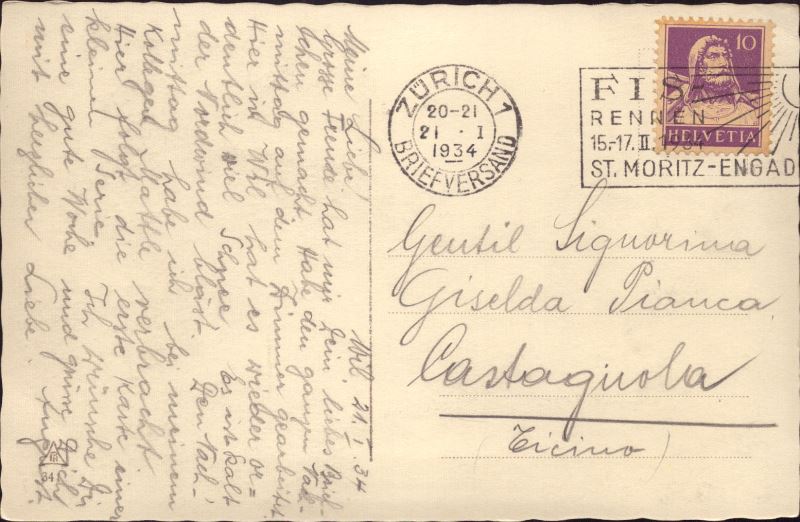 Wil. 21. I. 34
Meine Liebe!
Grosse Freude hat mir Dein liebes Brief-
chen gemacht. Habe den ganzen Vor-
mittag auf dem Zimmer gearbeitet.
Hier in Wil hat es wieder or-
dentlich viel Schnee. Es ist kalt
der Nordwind bläst. Den Nach-
mittag habe ich bei meinem
Kollegen Mattle verbracht.
Hier folgt die erste Karte einer
kleinen Serie. Ich wünsche Dir
eine gute Woche und grüsse Dich
mit herzlicher Liebe. August.
34
ZÜRICH 1
20-21
21. I
1934
BRIEFVERSAND
FIS
RENNEN
15.-17. II. 1934
ST. MORITZ-ENGAD
10
HELVETIA
Gentil Signorina
Giselda Pianca
Castagnola
(Ticino)